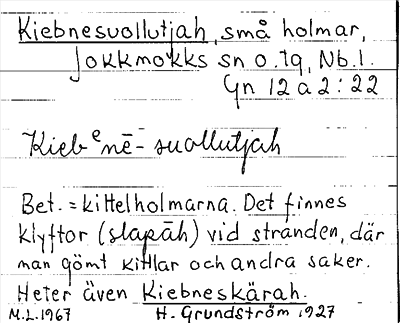 Kiebnesuollutjah, små holmar,
Jokkmokks sn o. tg, Nb. l.
Gn 12 a 2 : 22
Kiebᵉnē-suollutjah
Bet. = kittelholmarna. Det finnes
klyftor (slapāh) vid stranden, där
man gömt kittlar och andra saker.
Heter även Kiebneskärah.
M.L. 1967 H. Grundström 1927